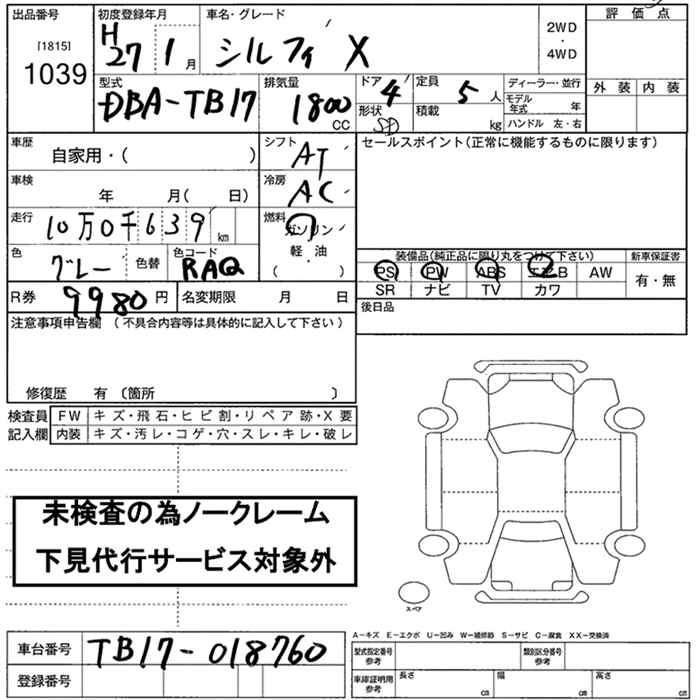 出品番号
[1815]
1039
初度登録年月
H 27 1 月
車名・グレード
シルフィ X
2WD
・
4WD
評 価 点
外 装 内 装
型式
DBA-TB17
排気量
1800
CC
ドア 4
形状 SD
定員 5 人
積載 kg
ディーラー・並行
モデル年式 年
ハンドル 左・右
車歴
自家用・( )
シフト
AT
セールスポイント(正常に機能するものに限ります)
車検
年 月( 日)
冷房
AC
走行
10万0千639 km
燃料
ガソリン
・
軽・油
( )
色
グレー
色替
色コード
RAQ
装備品(純正品に限り丸をつけて下さい)
PS PW ABS エアB AW
SR ナビ TV カワ
新車保証書
有・無
R券 9980 円
名変期限 月 日
後日品
注意事項申告欄 (不具合内容等は具体的に記入して下さい)
修復歴 有 〔箇所 〕
検査員記入欄
FW キズ・飛石・ヒビ割・リペア跡・X要
内装 キズ・汚レ・コゲ・穴・スレ・キレ・破レ
未検査の為ノークレーム
下見代行サービス対象外
スペア
A−キズ E−エクボ U−凹み W−補修跡 S−サビ C−腐食 XX−交換済
車台番号 TB17-018760
登録番号
型式指定番号
参考
類別区分番号
参考
車庫証明用
参考
長さ cm 幅 cm 高さ cm